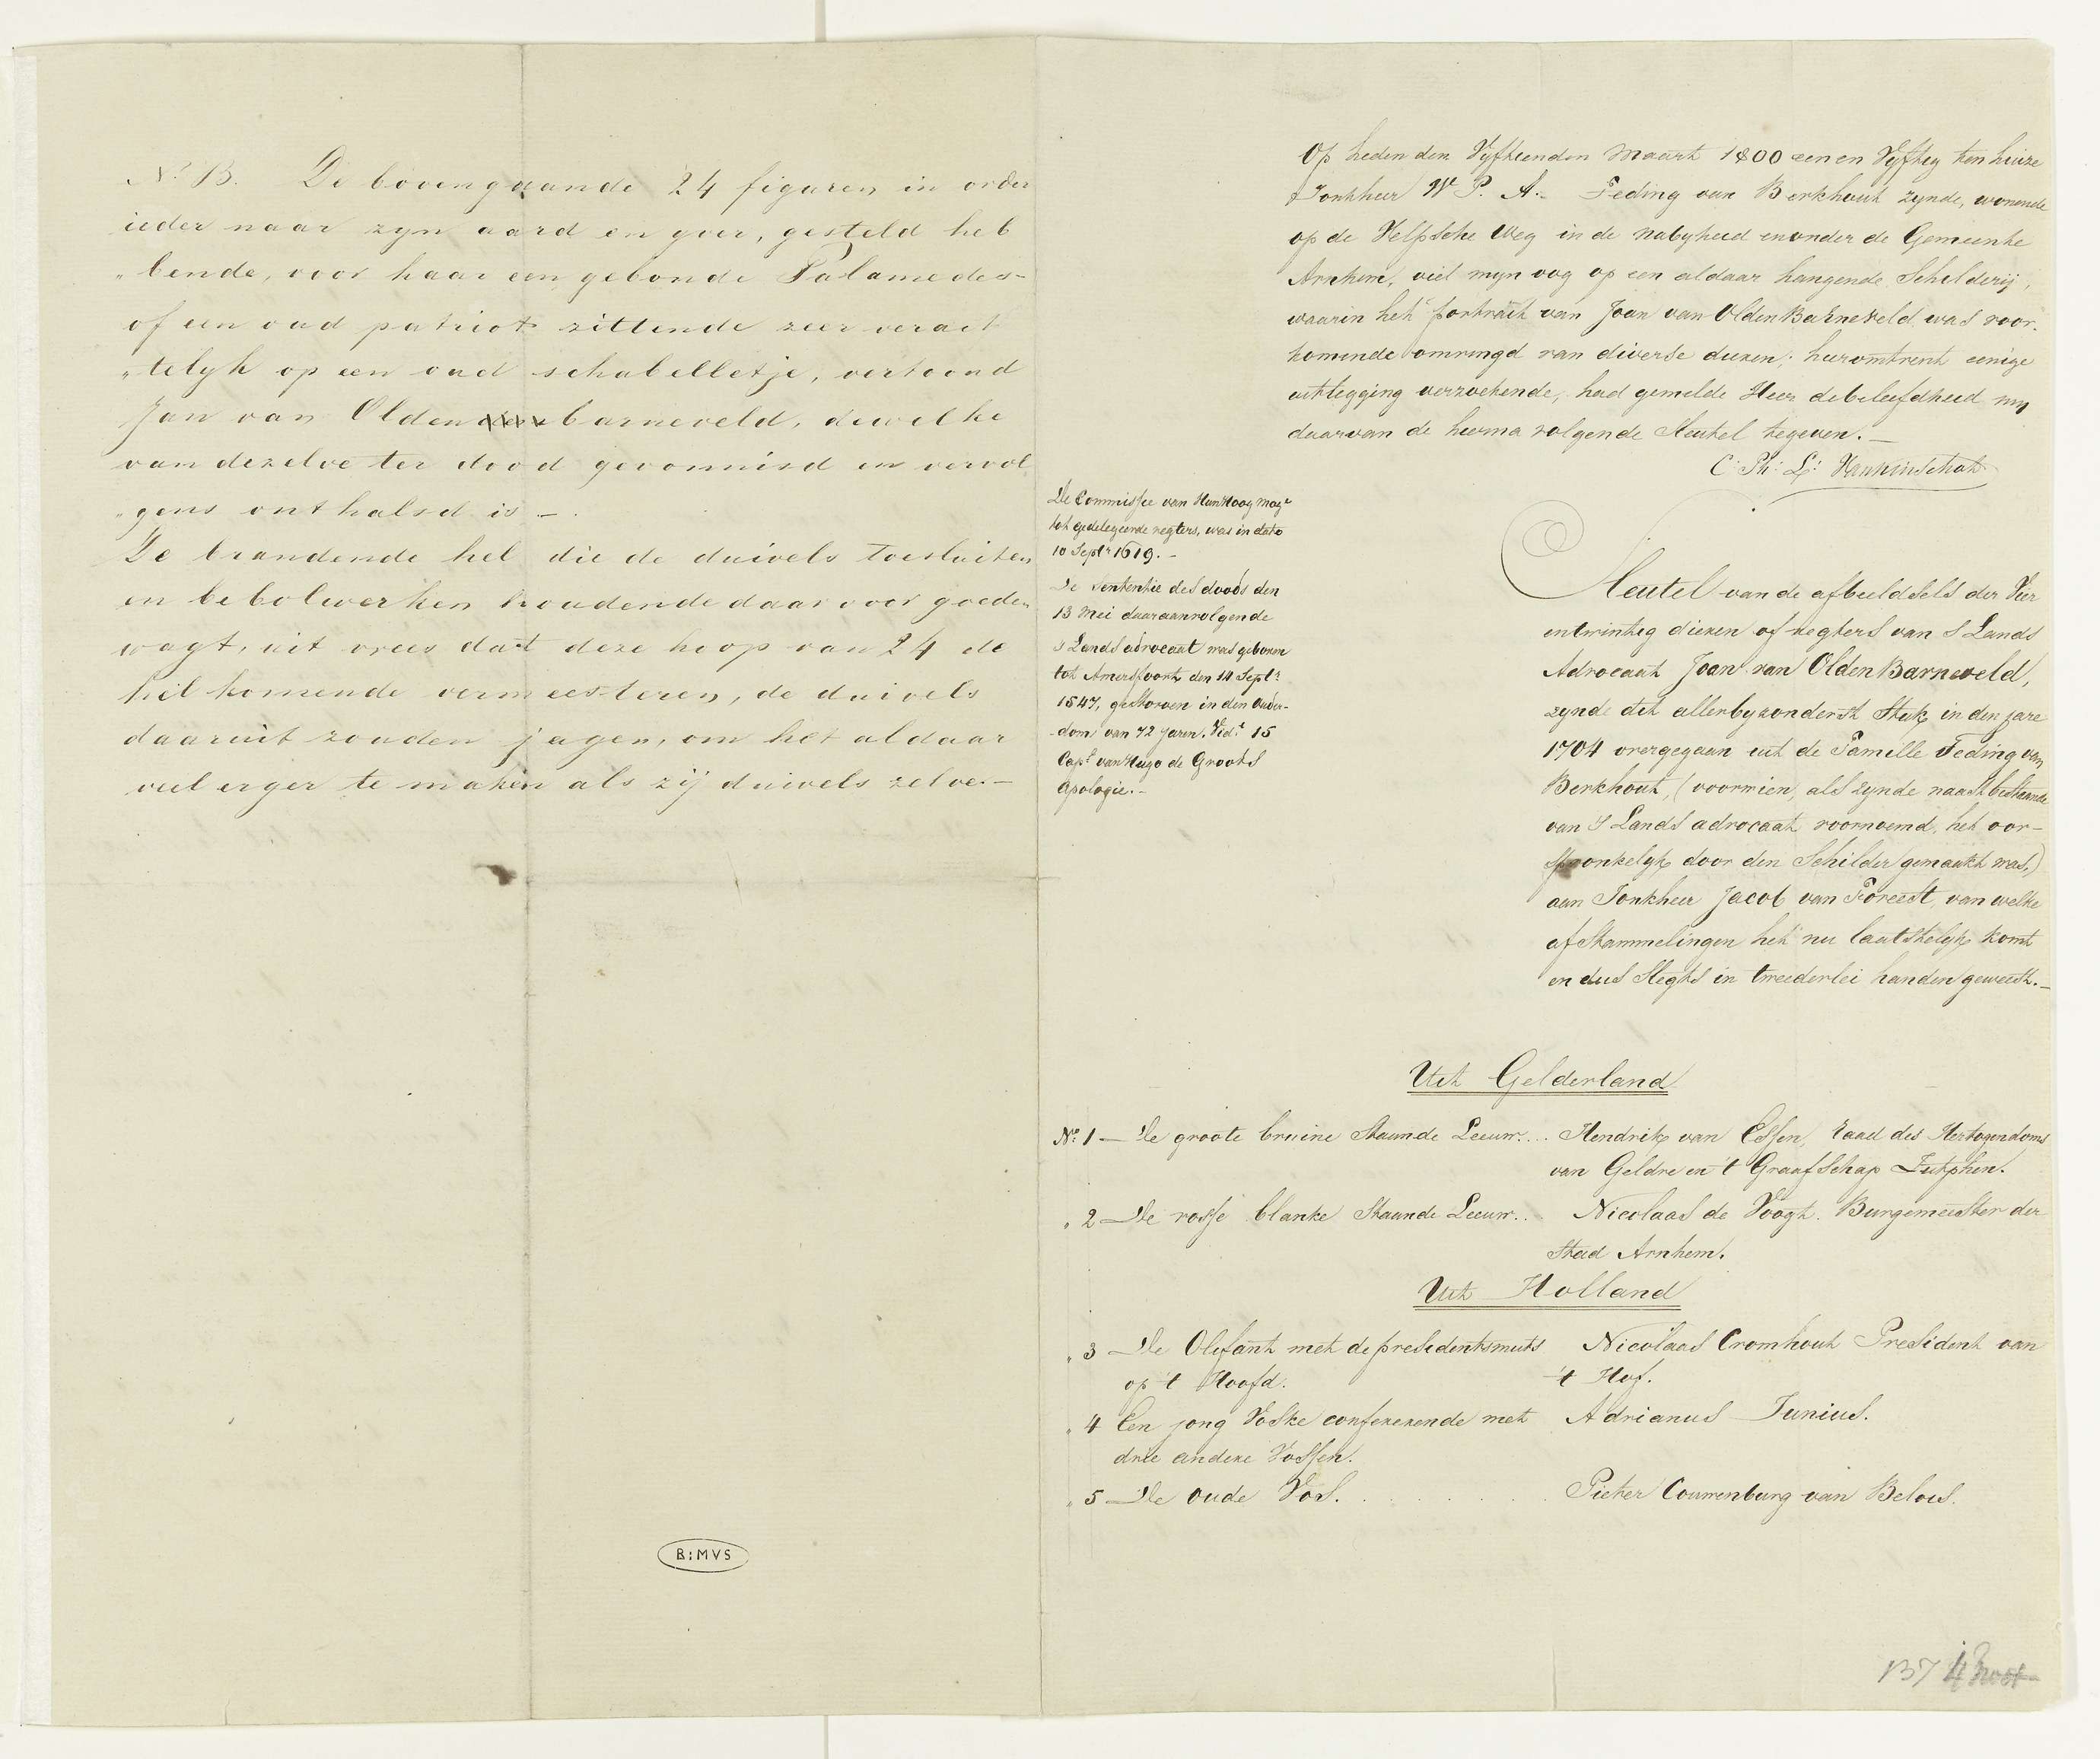 N.º B. De bovengaande 24 figuren in order
ieder naar zyn aard en yver, gesteld heb
„bende, voor haar een gebonde Palamedes-
of een oud patriot zittende zeer veracht
„telyk op een oud schabelletje, vertoond
Jan van Oldenbarneveld, dewelke
van dezelve ter dood gevonnisd en vervol
„gens onthalsd is —.
De brandende hel die de duivels toesluiten
en bebolwerken houdende daar voor goede
wagt, uit vrees dat deze hoop van 24 de
hel komende vermeesteren, de duivels
daaruit zouden jagen, om het aldaar
veel erger te maken als zij duivels zelve.—
B:MVS
Op heden den Vyftienden Maart 1800 een en Vyftig ten huize
Jonkheer W. P. A. Teding van Berkhout zynde, wonende
op de Velpsche Weg in de nabyheid en onder de Gemeente
Arnhem, viel myn oog op een aldaar hangende Schilderij,
waarin het portrait van Joan van Olden Barneveld was voor-
komende omringd van diverse dieren; hieromtrent eenige
uitlegging verzoekende, had gemelde Heer de beleefdheid my
daarvan de hierna volgende Sleutel te geven.—
C: Ph: L:
De Commissie van Hun Hoog Mog.e
tot gedelegeerde regters, was in dato
10 Sept.r 1619.—
De Sententie des doods den
13 Mei daaraanvolgende
s Lands advocaat was geboren
tot Amersfoort den 14 Sept.r
1547, gestorven in den ouder-
dom van 72 jaren. Vid.t 15
Cap.l van Hugo de Groots
Apologie.—
Sleutel van de afbeeldsels der Vier
entwintig dieren of regters van S Lands
Advocaat Joan van Olden Barneveld,
zynde dit allerbyzonderst Stuk in den jare
1704 overgegaan uit de Familie Teding van
Berkhout, (voor wien, als zynde naastbestaande
van 's Lands advocaat voornoemd, het oor-
spronkelyk door den Schilder gemaakt was,)
aan Jonkheer Jacob van Foreest, van welke
afstammelingen het nu laatstelyk komt
en dus slegts in tweederlei handen geweest.—
Uit Gelderland
N.º 1 — De groote bruine Staande Leeuw.... Hendrik van Essen, raad des Hertogendoms
van Geldre en 't Graafschap Zutphen.
„ 2 — De rosse blanke Staande Leeuw... Nicolaas de Voogt. Burgemeester der
Stad Arnhem.
Uit Holland
„ 3 — De Olifant met de presidentsmuts Nicolaas Cromhout President van
op 't Hoofd. 't Hof.
„ 4 Een jong Voske confererende met Adrianus Junius.
drie andere Vossen.
„ 5 — De oude Vos. . . . . . . Pieter Couwenburg van Belois.
137